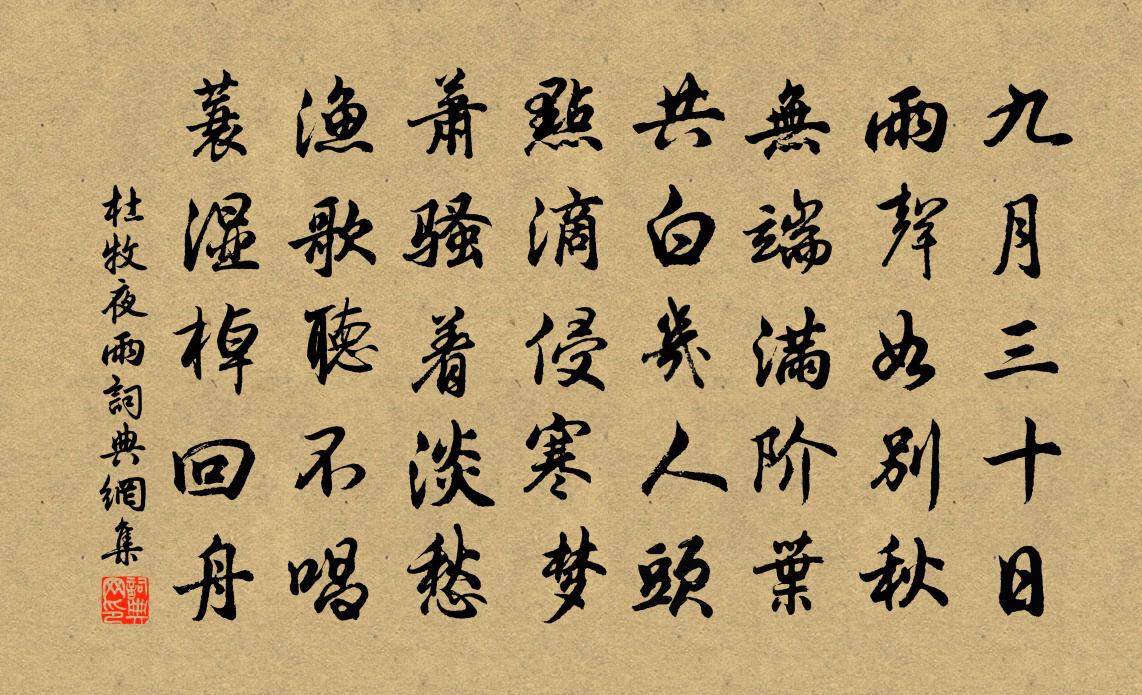 九月三十日
雨聲如别秋
無端满阶葉
共白幾人頭
點滴侵寒梦
萧骚着淡愁
漁歌聽不唱
蓑濕棹回舟
杜牧夜雨詞典網集
詞典网印